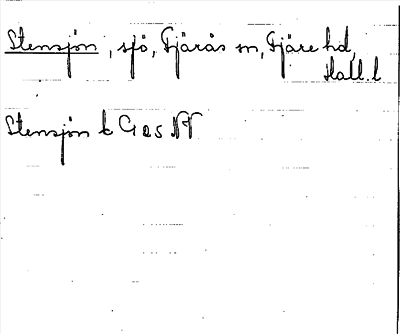 Stensjön, sjö, Fjärås sn, Fjäre hd,
Hall. l
Stensjön k G2s NV